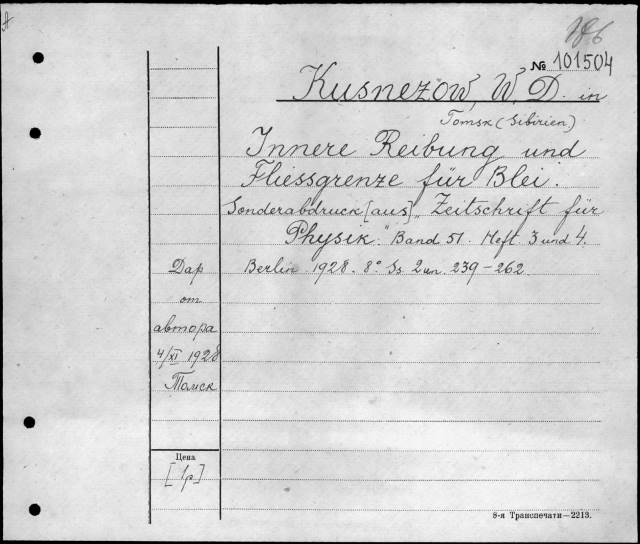 № 101504
Kusnezow, W. D. in
Tomsk (Sibirien)
Innere Reibung und
Fliessgrenze für Blei.
Sonderabdruck [aus] „Zeitschrift für
Physik." Band 51. Heft. 3 und 4.
Berlin 1928. 8° Ss 2 un. 239-262.
Дар
от
автора
4/XI 1928
Томск
Цена
[1р]
8-я Транспечати—2213.